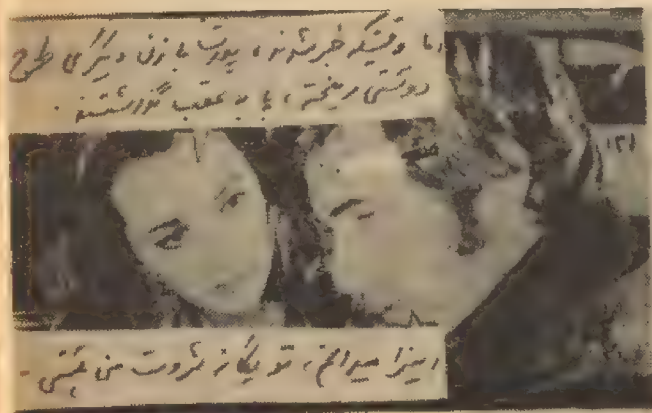 اما وقتیکه خبر شدند، پورت با زن دیگری طرح
دوستی ریخته، پا به عقب گذاشتند.
۱۳۱
اینرا میدانم، تو یگانه ثروت من هستی.